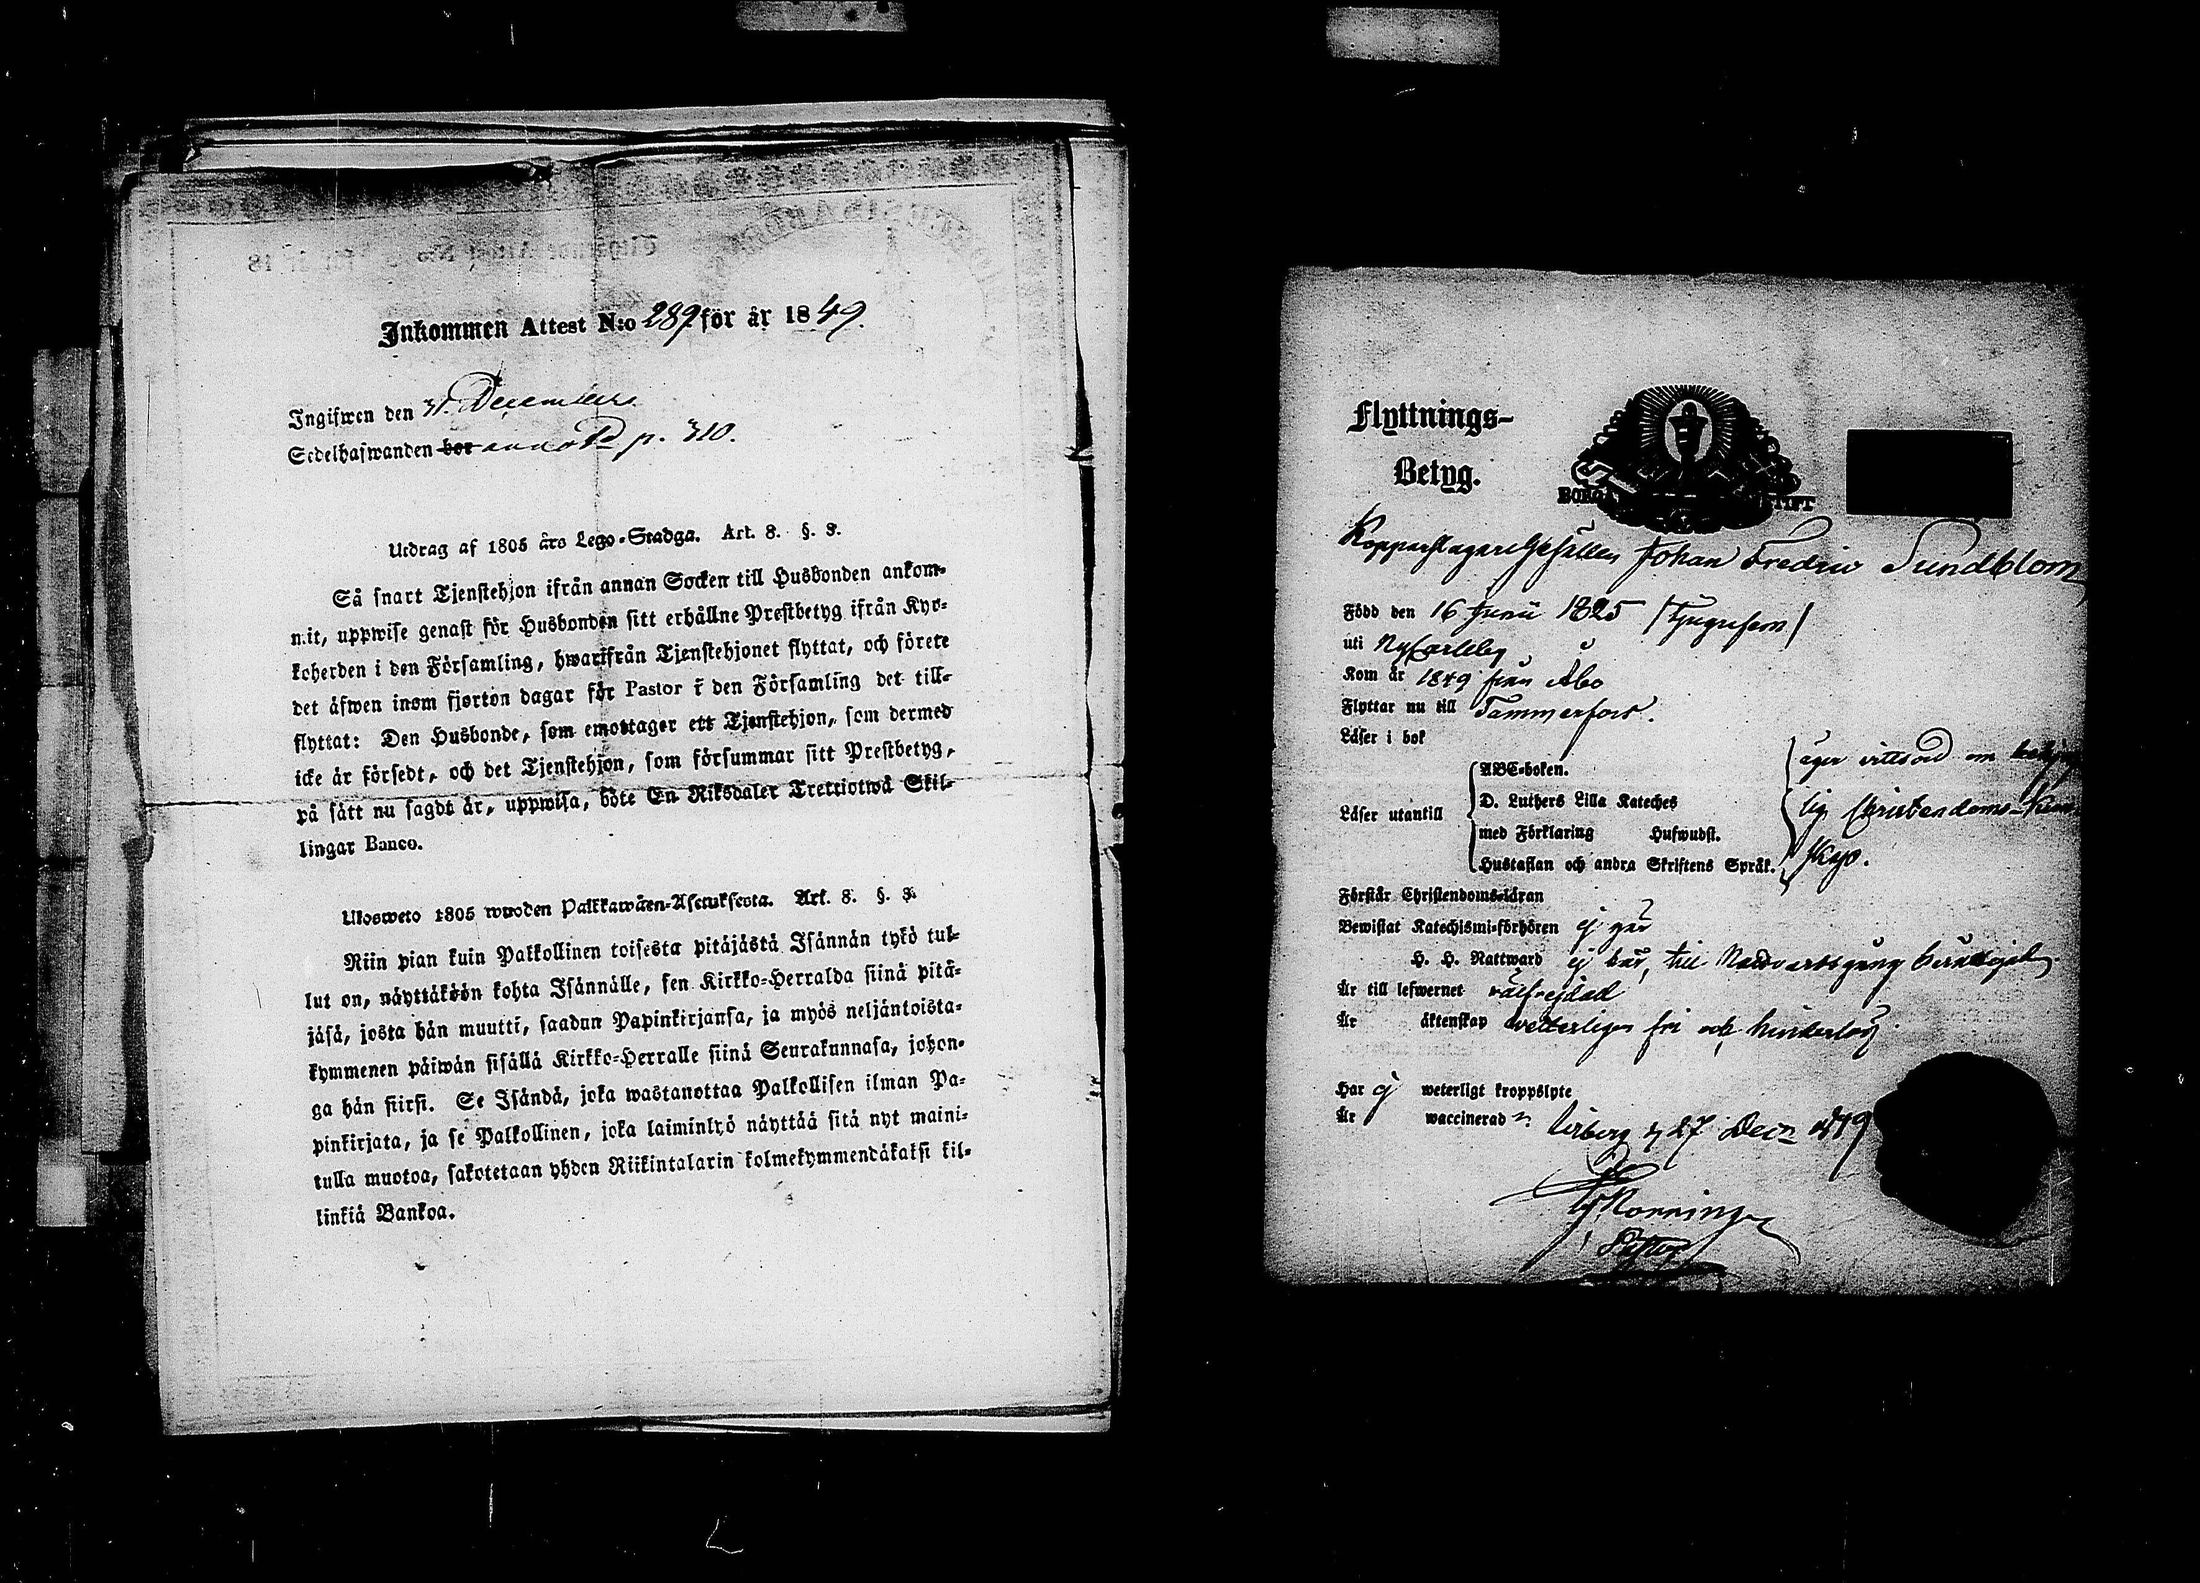 Inkommen Attest N:o 289 för år 1849.
Ingifwen den 31 December
Sedelhafwanden bor annot. p. 310.
Utdrag af 1805 års Lego-Stadga. Art. 8. §. 3.
Så snart Tjenstehjon ifrån annan Socken till Husbonden ankom-
mit, uppwise genast för Husbonden sitt erhållne Prestbetyg ifrån Kyr-
koherden i den Församling, hwarifrån Tjenstehjonet flyttat, och förete
det äfwen inom fjorton dagar för Pastor i den Församling det till-
flyttat: Den Husbonde, som emottager ett Tjenstehjon, som dermed
icke är försedt, och det Tjenstehjon, som försummar sitt Prestbetyg,
på sätt nu sagdt är, uppwisa, böte En Riksdaler Trettiotwå Skil-
lingar Banco.
Ulosweto 1805 wuoden Palkkawäen-Asetuksesta. Art. 8. §. 3.
Niin pian kuin Palkollinen toisesta pitäjästä Isännän tykö tul-
lut on, näyttäköön kohta Isännälle, sen Kirkko-Herralda siinä pitä-
jäsä, josta hän muutti, saadun Papinkirjansa, ja myös neljäntoista-
kymmenen päiwän sisällä Kirkko-Herralle siinä Seurakunnasa, johon-
ga hän siirsi. Se Isändä, joka wastanottaa Palkollisen ilman Pa-
pinkirjata, ja se Palkollinen, joka laiminlyö näyttää sitä nyt maini-
tulla muotoa, sakotetaan yhden Riikintalarin kolmekymmendäkaksi kil-
linkiä Bankoa.
Flyttnings-
Betyg.
BORGÅ STIFT
Kopparslagare Gesällen Johan Fredric Sundblom
Född den 16 Junii 1825 /tjugufem/
uti NyCarleby
Kom år 1849 från Åbo
Flyttar nu till Tammerfors.
Läser i bok
Läser utantill
ABC-boken.
D. Luthers Lilla Kateches
med Förklaring Hufwudst.
Hustaflan och andra Skriftens Språk.
äger vittsord om
lig Christendoms-kun
skap.
Förstår Christendomsläran
Bewistat Katechismi-förhören ej här
H. H. Nattward ej här, till Nattvardsgång berättigad
Är till lefwernet välfrejdad
Är äktenskap vetterligen fri och hinderlös.
Har ej weterligt kroppslyte
Är waccinerad
27 Decr 1849
Pastor